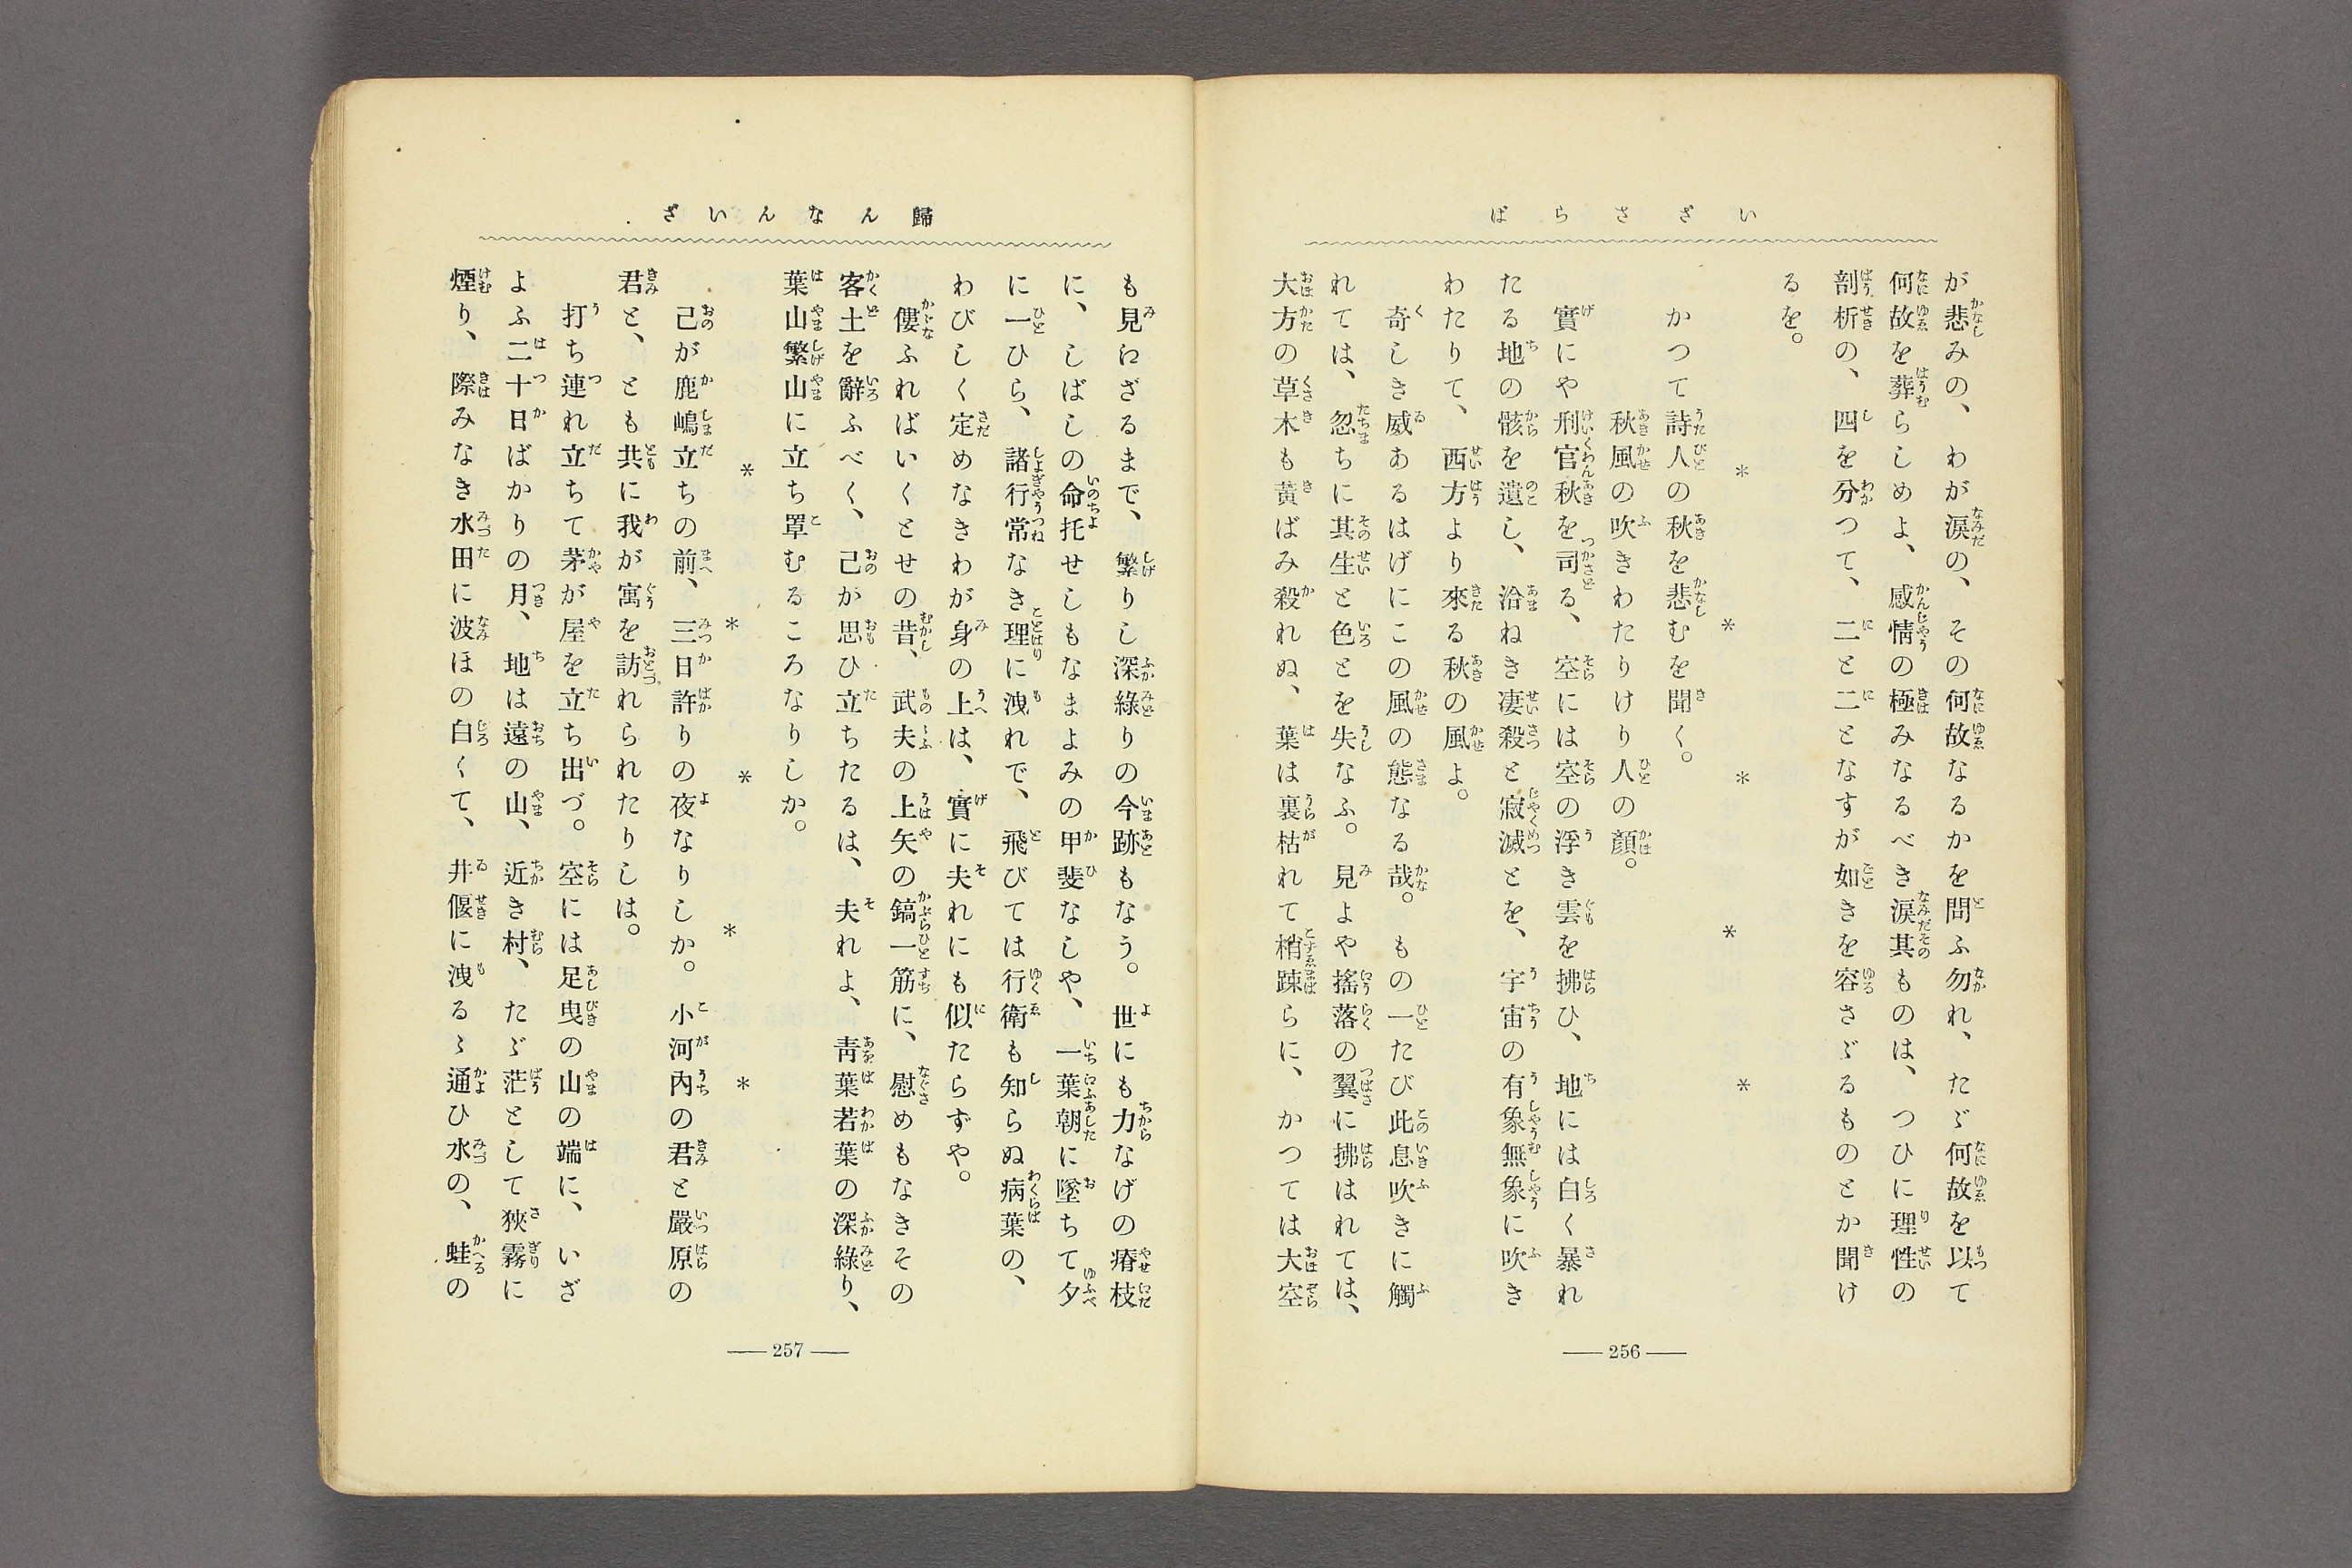 いざさらば
が悲みの、わが涙の、その何故なるかを問ふ勿れ、たゞ何故を以て
何故を葬らしめよ、感情の極みなるべき涙其ものは、つひに理性の
剖析の、四を分つて、二と二となすが如きを容さゞるものとか聞け
るを。
* * * * *
かつて詩人の秋を悲むを聞く。
秋風の吹きわたりけり人の顏。
實にや刑官秋を司る、空には空の浮き雲を拂ひ、地には白く暴れ
たる地の骸を遺し、洽ねき凄殺と寂滅とを、宇宙の有象無象に吹き
わたりて、西方より來る秋の風よ。
奇しき威あるはげにこの風の態なる哉。もの一たび此息吹きに觸
れては、忽ちに其生と色とを失なふ。見よや搖落の翼に拂はれては、
大方の草木も黃ばみ殺れぬ、葉は裏枯れて梢踈らに、かつては大空
256
歸んなんいざ
も見えざるまで、繁りし深綠りの今跡もなう。世にも力なげの瘠枝
に、しばしの命托せしもなまよみの甲斐なしや、一葉朝に墜ちて夕
に一ひら、諸行常なき理に洩れで、飛びては行衛も知らぬ病葉の、
わびしく定めなきわが身の上は、實に夫れにも似たらずや。
僂ふればいくとせの昔、武夫の上矢の鏑一筋に、慰めもなきその
客土を辭ふべく、己が思ひ立ちたるは、夫れよ、靑葉若葉の深綠り、
葉山繁山に立ち罩むるころなりしか。
* * * * *
己が鹿嶋立ちの前、三日許りの夜なりしか。小河內の君と嚴原の
君と、とも共に我が寓を訪れられたりしは。
打ち連れ立ちて茅が屋を立ち出づ。空には足曳の山の端に、いざ
よふ二十日ばかりの月、地は遠の山、近き村、たゞ茫として狹霧に
煙り、際みなき水田に波ほの白くて、井偃に洩るゝ通ひ水の、蛙の
257